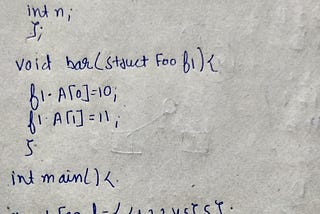 int n;
};
void bar(struct Foo f1){
f1.A[0]=10;
f1.A[1]=11;
}
int main(){